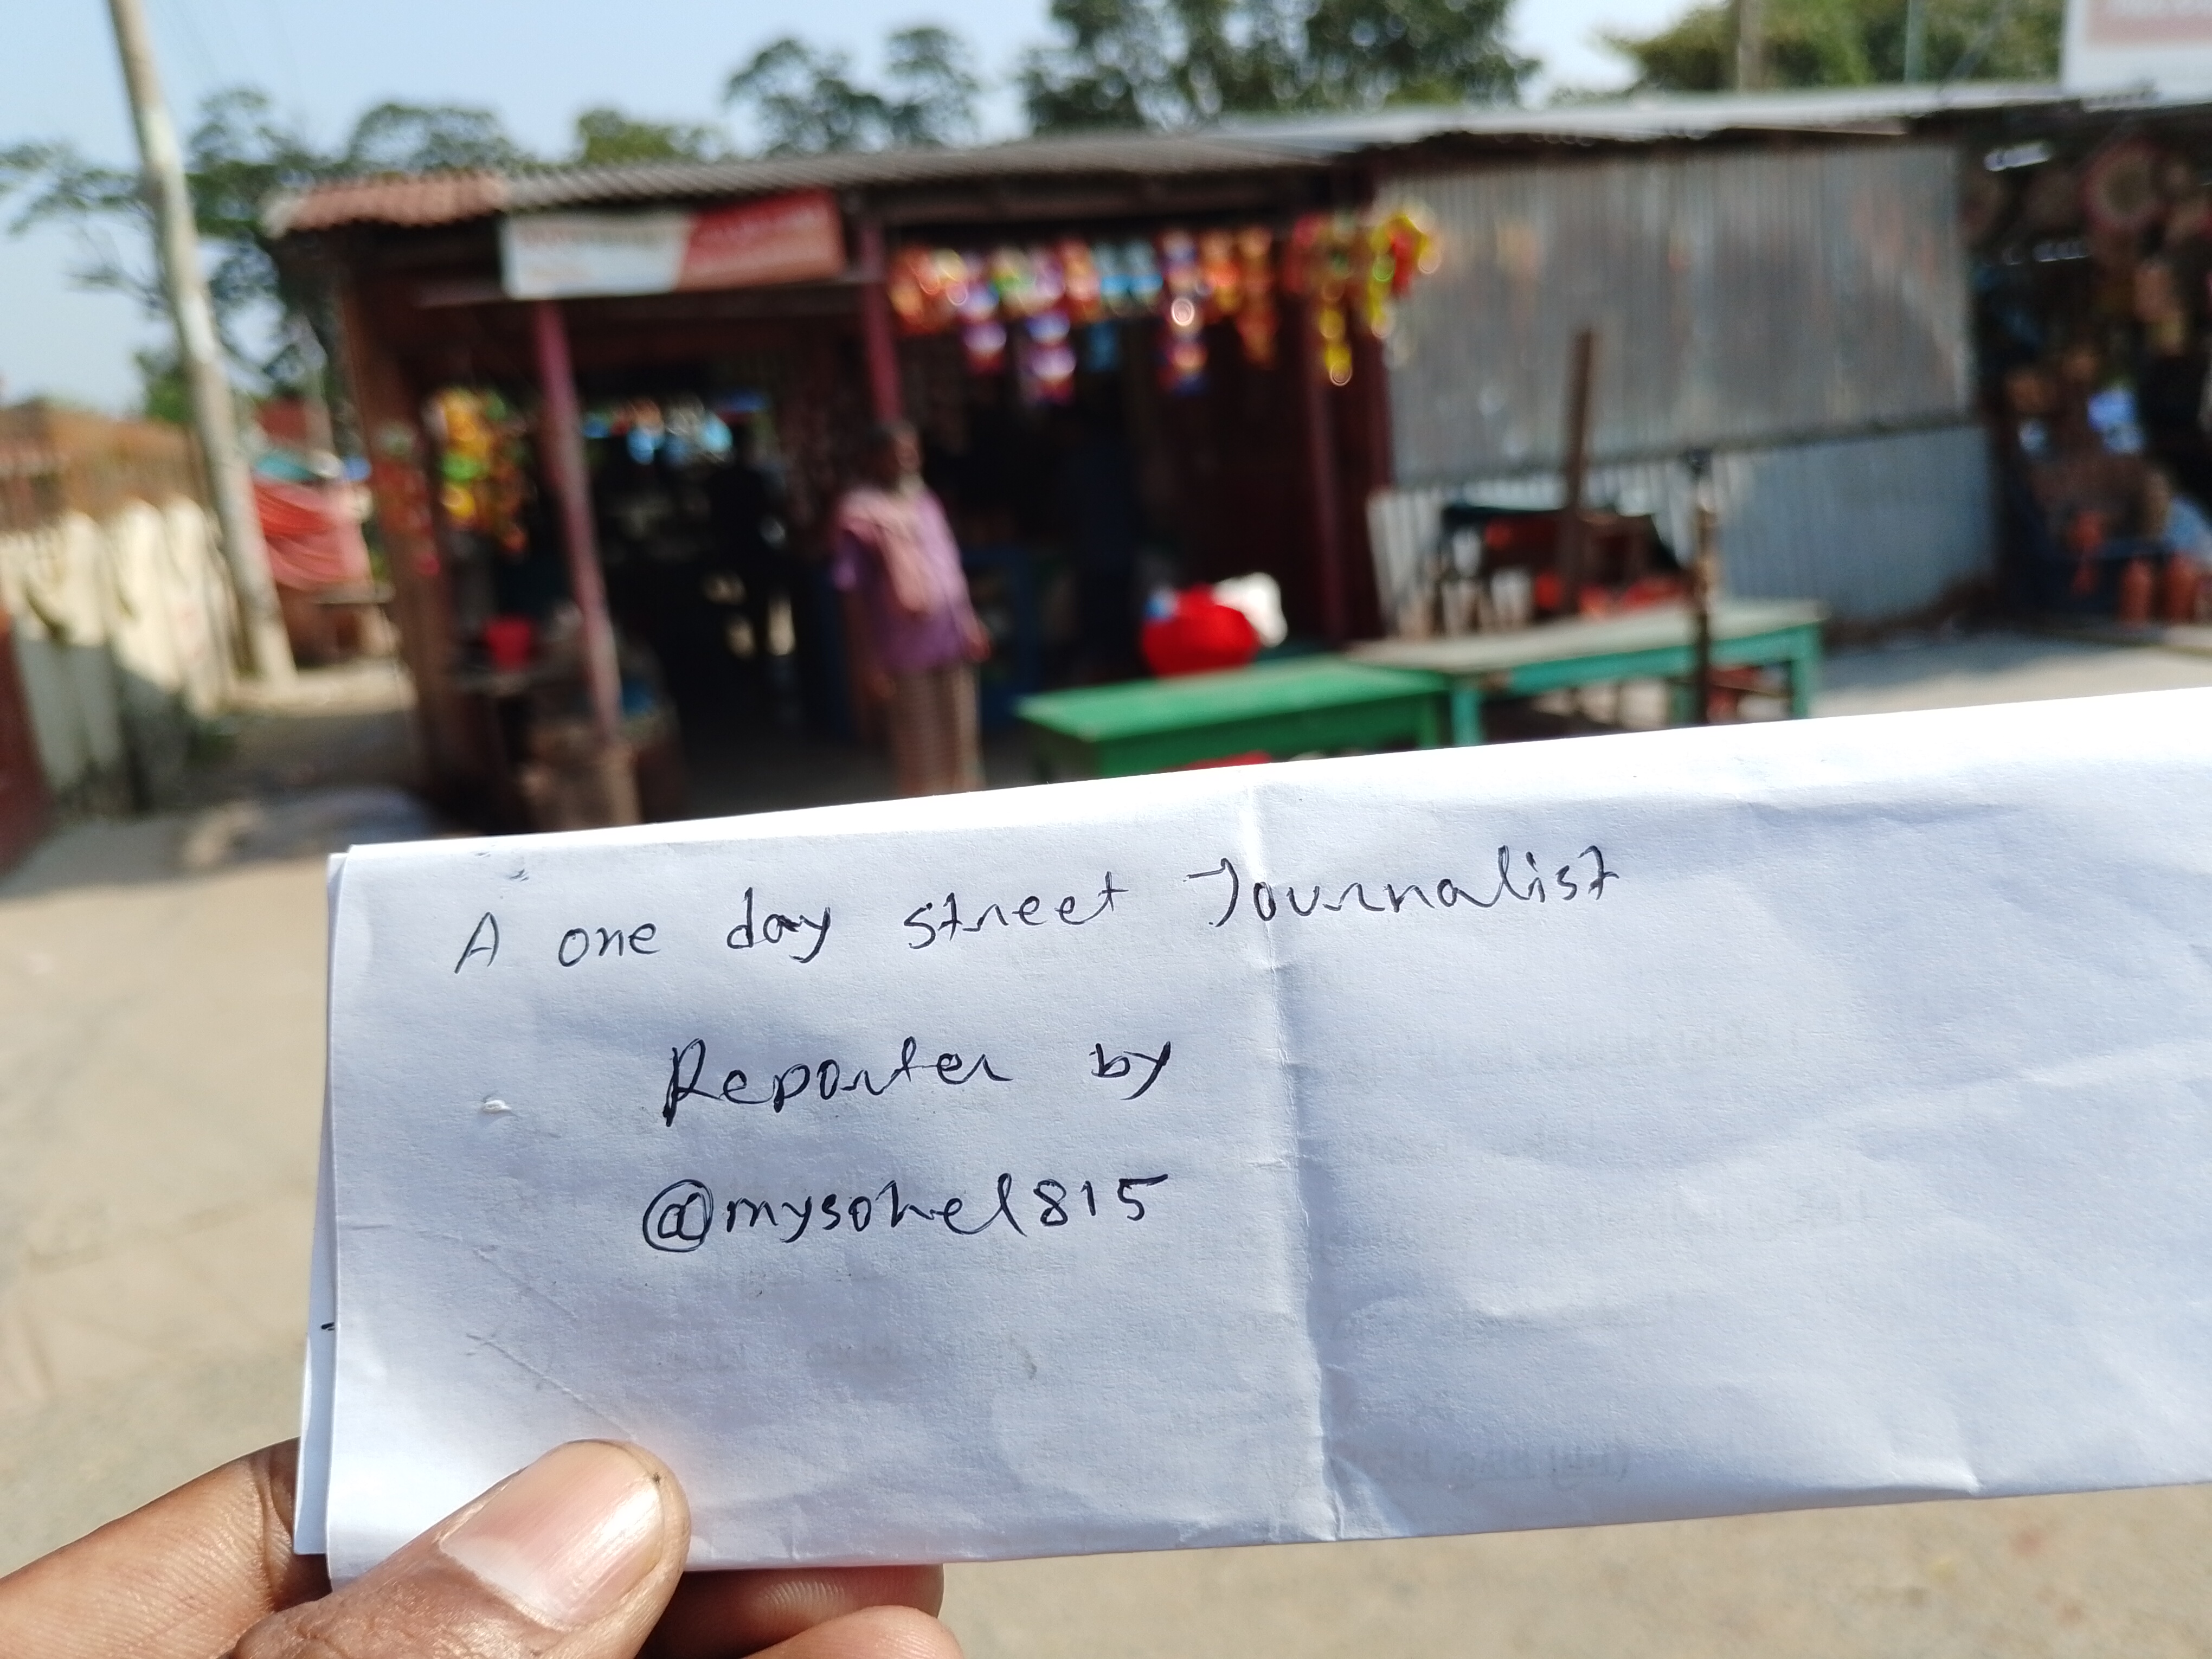 A one day street Journalist
Reporter by
@mysohel815